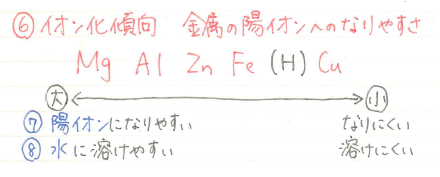 ⑥ イオン化傾向 金属の陽イオンへのなりやすさ
Mg Al Zn Fe (H) Cu
大 ⟷ 小
⑦ 陽イオンになりやすい なりにくい
⑧ 水に溶けやすい 溶けにくい